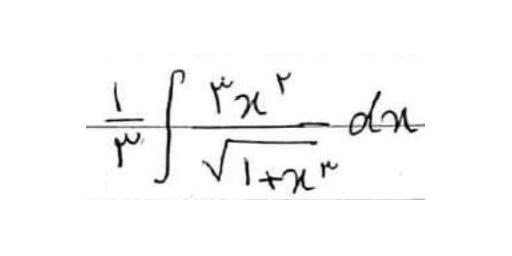 ۱/۳ ∫ ۳x^۲ / √(۱+x^۳) dx